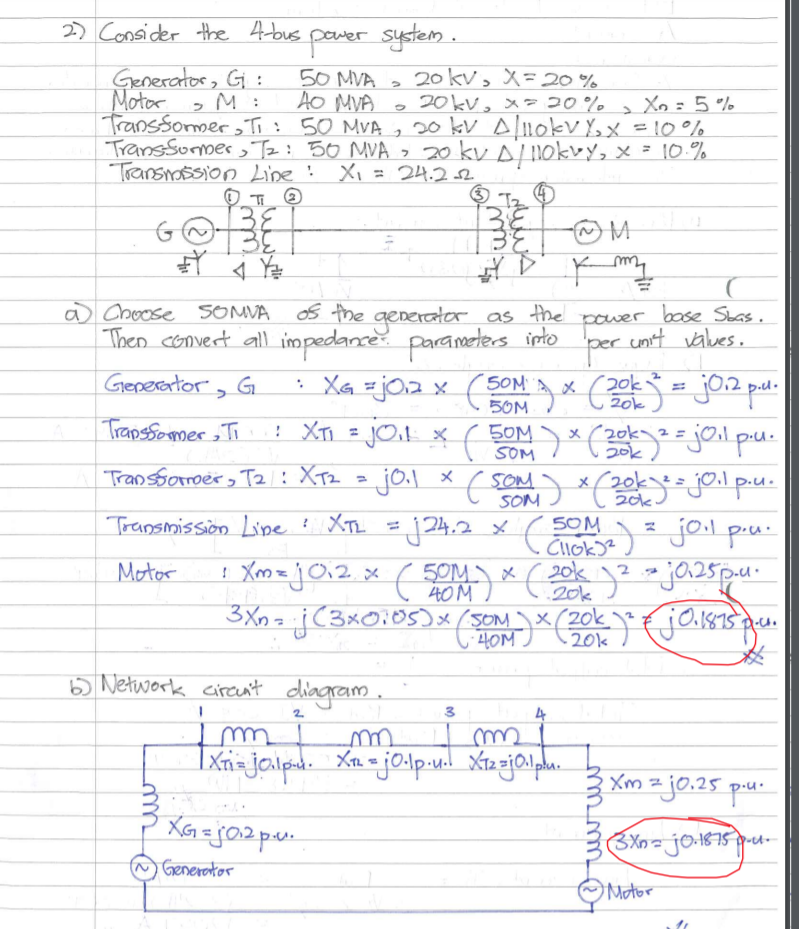 2) Consider the 4-bus power system.
Generator, G : 50 MVA, 20 kV, X = 20 %
Motor, M : 40 MVA, 20 kV, X = 20 %, Xn = 5 %
Transformer, T1 : 50 MVA, 20 kV Δ/110kV Y, X = 10 %
Transformer, T2 : 50 MVA, 20 kV Δ/110kV Y, X = 10 %
Transmission Line : X1 = 24.2 Ω
1 T1 2 3 T2 4
G M
Y Δ Y Y Δ Y
a) Choose 50MVA of the generator as the power base Sbas.
Then convert all impedance parameters into per unit values.
Generator, G : XG = j0.2 × (50M/50M) × (20k/20k)² = j0.2 p.u.
Transformer, T1 : XT1 = j0.1 × (50M/50M) × (20k/20k)² = j0.1 p.u.
Transformer, T2 : XT2 = j0.1 × (50M/50M) × (20k/20k)² = j0.1 p.u.
Transmission Line : XTL = j24.2 × (50M/(110k)²) = j0.1 p.u.
Motor : Xm = j0.2 × (50M/40M) × (20k/20k)² = j0.25 p.u.
3Xn = j(3×0.05) × (50M/40M) × (20k/20k)² = j0.1875 p.u.
b) Network circuit diagram.
1 2 3 4
XT1 = j0.1p.u. XTL = j0.1p.u. XT2 = j0.1p.u.
Xm = j0.25 p.u.
XG = j0.2 p.u.
3Xn = j0.1875 p.u.
Generator
Motor